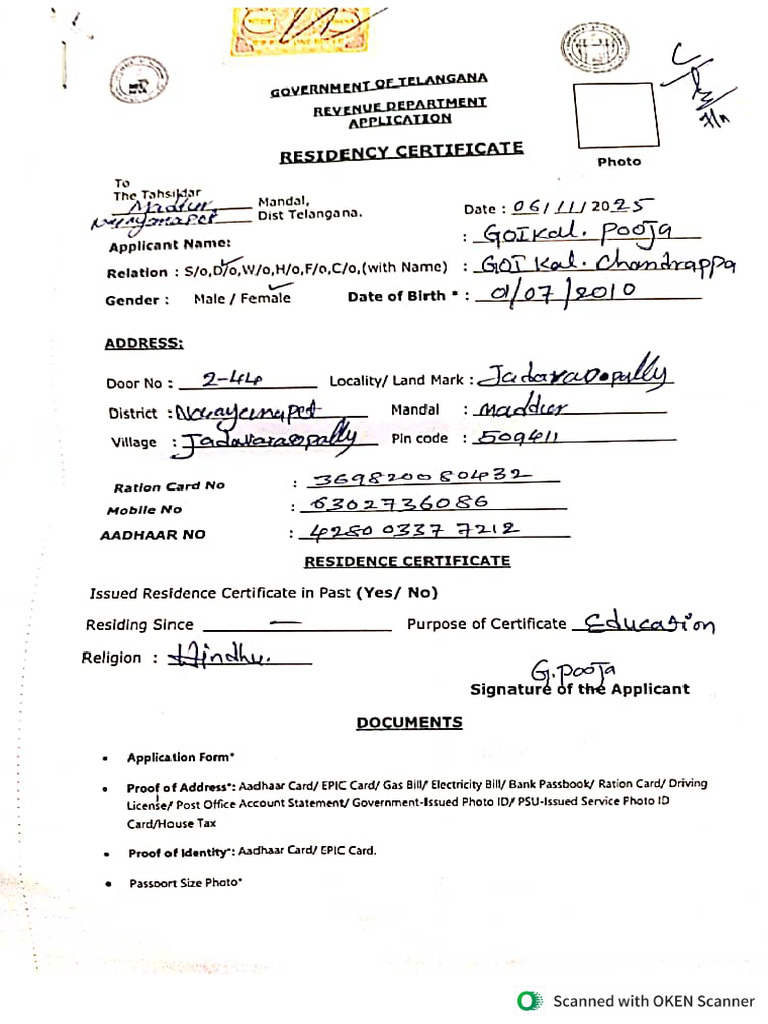 GOVERNMENT OF TELANGANA
REVENUE DEPARTMENT
APPLICATION
RESIDENCY CERTIFICATE
Photo
To
The Tahsildar
Maddur Mandal,
Narayanapet Dist Telangana.
Date : 06/11/2025
Applicant Name: : GOIKal. Pooja
Relation : S/o,D/o,W/o,H/o,F/o,C/o,(with Name) : GOIKal. Chandrappa
Gender : Male / Female Date of Birth * : 01/07/2010
ADDRESS:
Door No : 2-44 Locality/ Land Mark : Jadavaraopally
District : Narayanapet Mandal : maddur
Village : Jadavaraopally Pin code : 509411
Ration Card No : 369820080432
Mobile No : 6302736086
AADHAAR NO : 4280 0337 7212
RESIDENCE CERTIFICATE
Issued Residence Certificate in Past (Yes/ No)
Residing Since — Purpose of Certificate Education
Religion : Hindhu.
G.pooja
Signature of the Applicant
DOCUMENTS
• Application Form*
• Proof of Address*: Aadhaar Card/ EPIC Card/ Gas Bill/ Electricity Bill/ Bank Passbook/ Ration Card/ Driving
License/ Post Office Account Statement/ Government-Issued Photo ID/ PSU-Issued Service Photo ID
Card/House Tax
• Proof of Identity*: Aadhaar Card/ EPIC Card.
• Passport Size Photo*
Scanned with OKEN Scanner